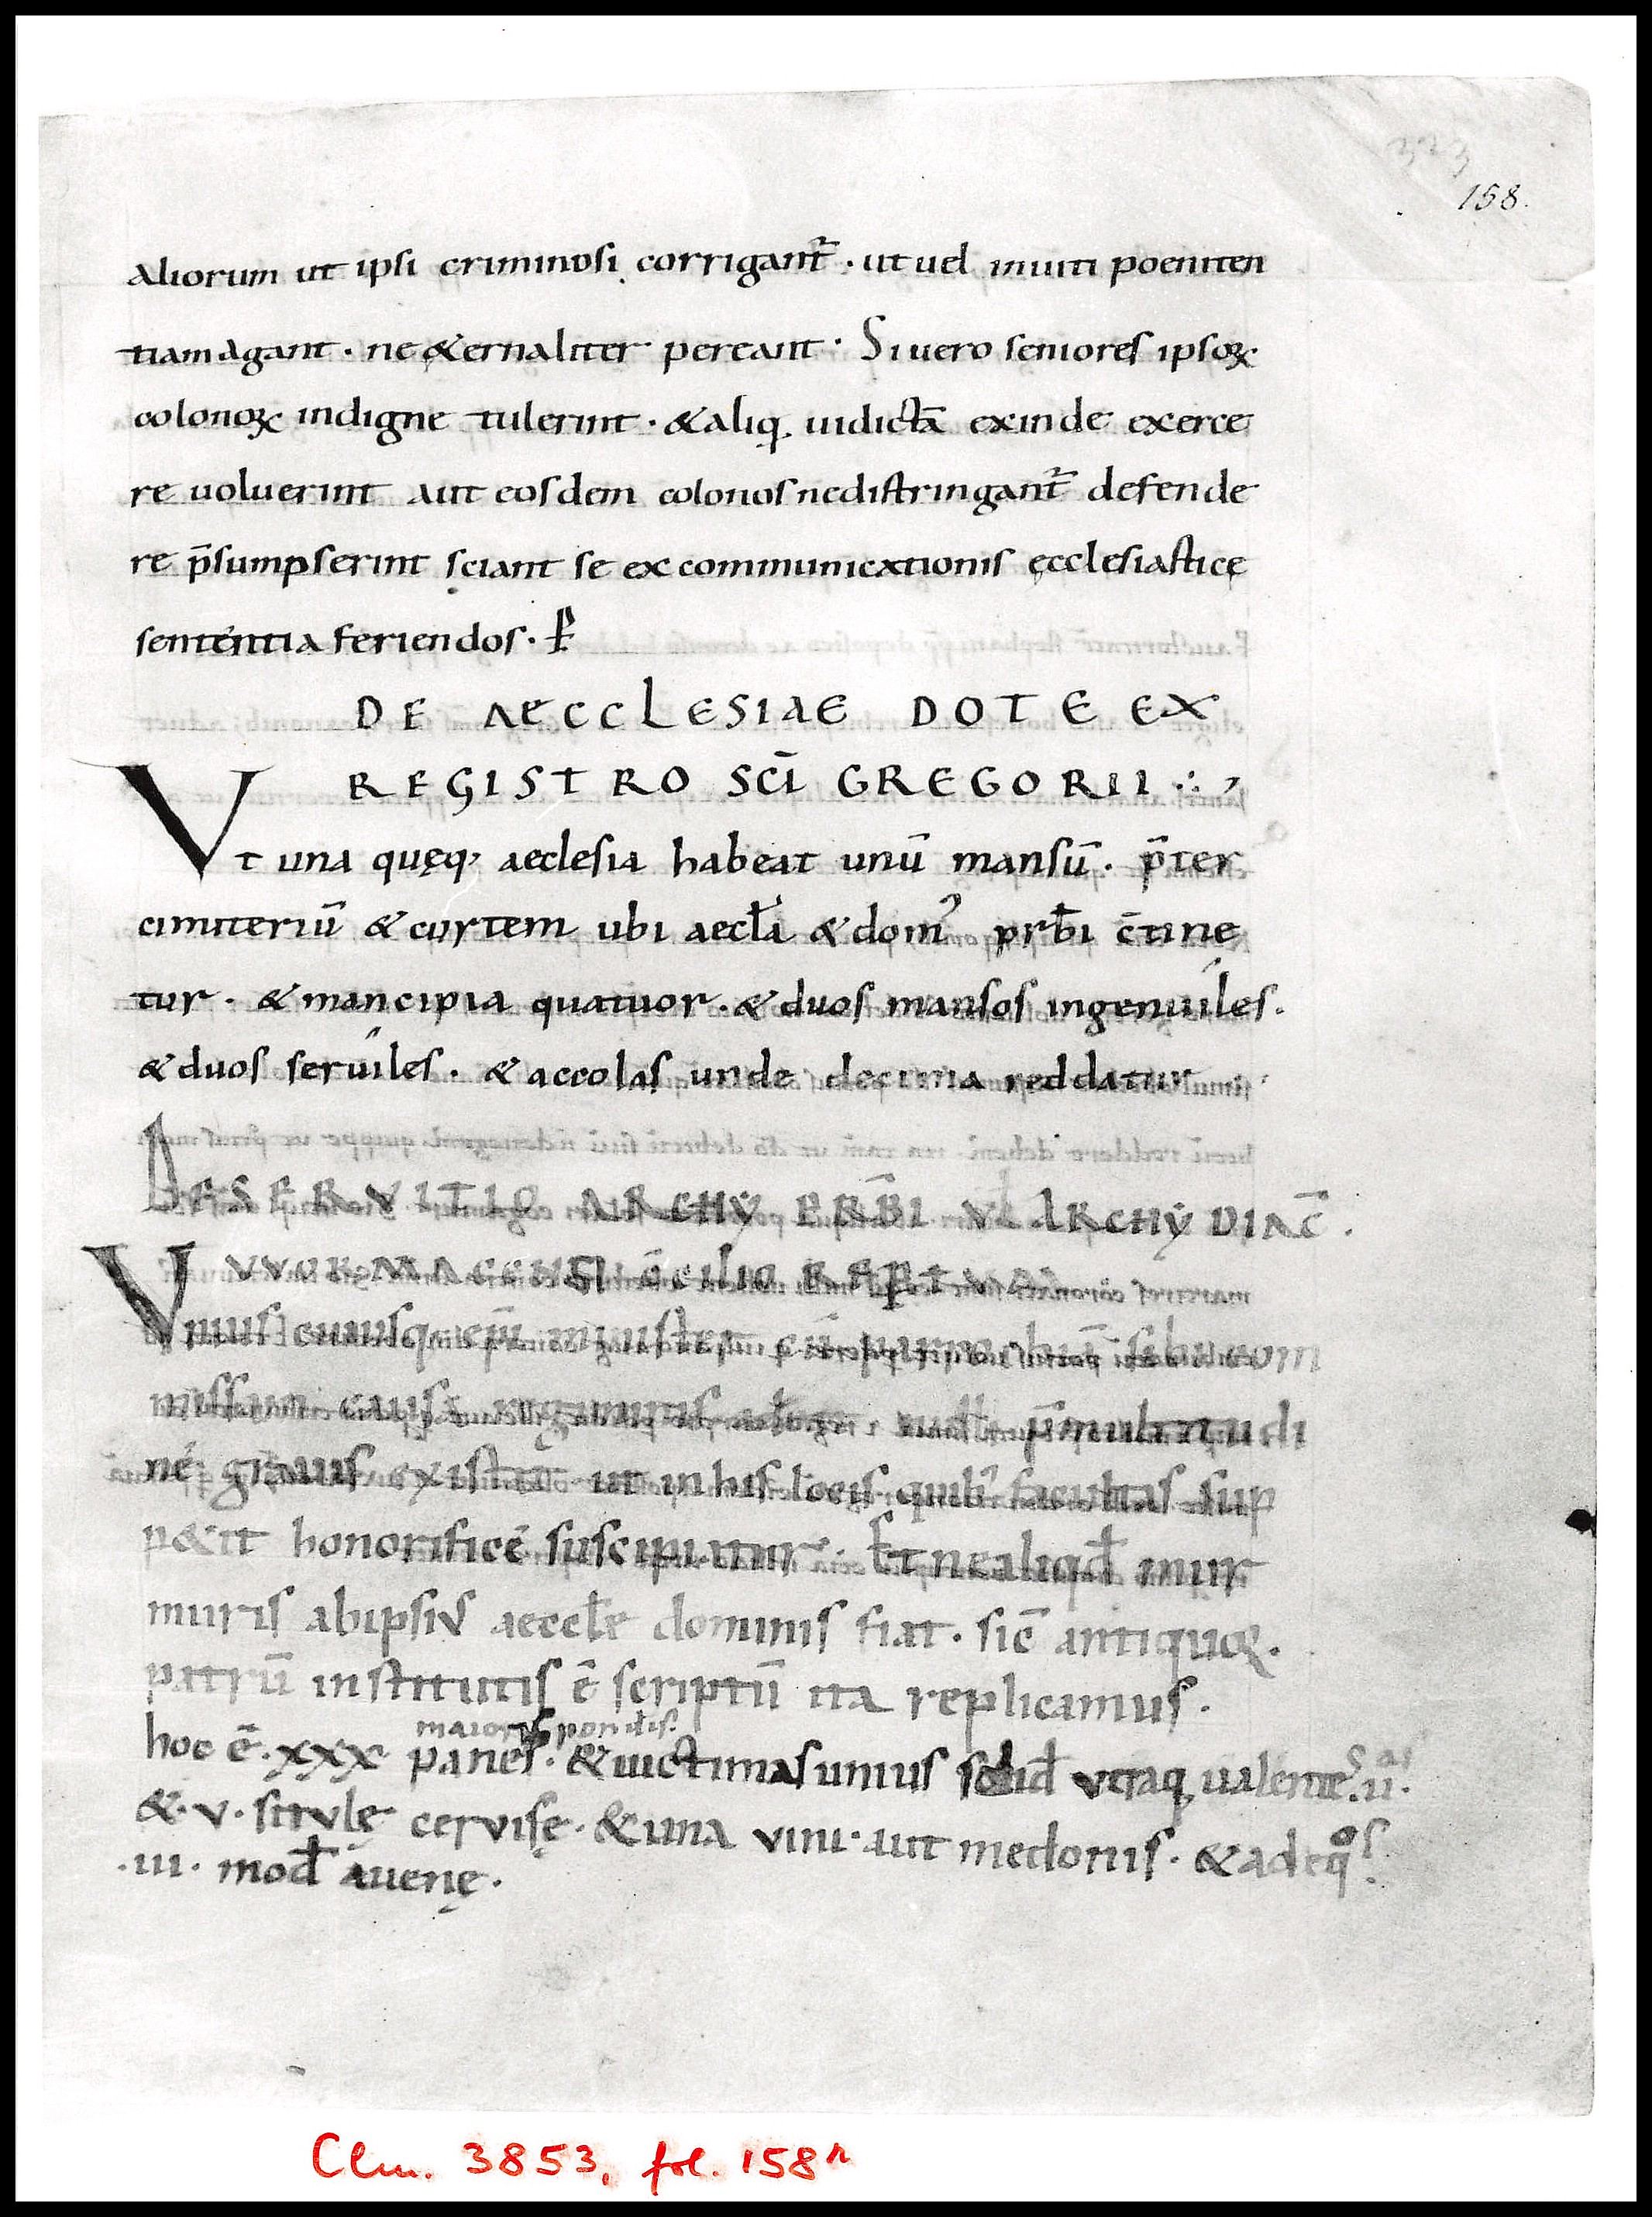 323
158.
aliorum ut ipsi criminosi corrigant᷑ · ut uel inuiti poeniten
tiam agant · ne &ernaliter pereant · Si uero seniores ipsoꝝ
colonoꝝ indigne tulerint · & aliq. uidictā exinde exerce
re uoluerint aut eosdem colonos ne distringant᷑ defende
re p̄sumpserint sciant se excommunicationis ęcclesiastice
sententia feriendos ·
DE AECCLESIAE DOTE EX
REGISTRO SC̄I GREGORII ∴,
Vt una quęq; aeclesia habeat unū mansū · p̄ter
cimiteriū & curtem ubi aecl̄a & domꝰ prb̄i c̄tine
tur · & mancipia quatuor · & duos mansos ingenuiles ·
& duos seruiles · & accolas unde decima reddatur
DE SERVITIO ARCHYPRB̄I VL̄ ARCHYDIAC̄ ·
VVORMACENSI c̄cilio
Vnius cuiusq; ep̄i minister parrochiā sibi com
missam causa p̄ multitudi
ne grauis existat ut in his locis quibꝰ facultas sup
p&it honorifice suscipiatur · Et ne aliqd̄ mur
muris ab ipsius aeccl̄e dominis fiat · sic̄ antiquoꝝ
patrū institutis ē scriptū ita replicamus ·
maioris ponderis
hoc ē · xxx panes · & uictimas unius solid̄ utraq; ualentes · ii · as
& · v · situlę ceruisę · & una vini · aut medonis · & ad eqos
· iii · mod̄ auenę ·
Clm. 3853, fol. 158r